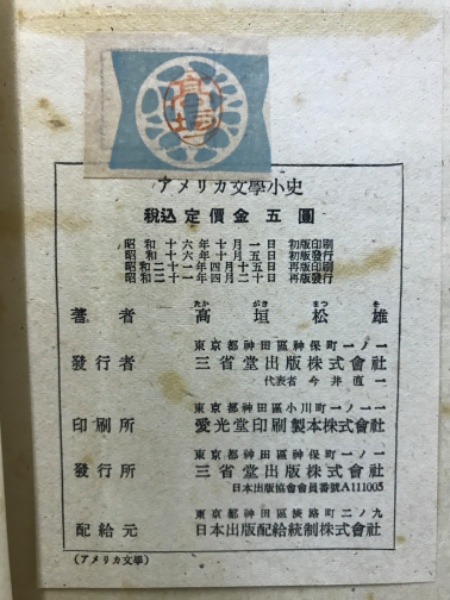 アメリカ文學小史
税込定價金五圓
昭和十六年十月一日 初版印刷
昭和十六年十月五日 初版發行
昭和二十一年四月十五日 再版印刷
昭和二十一年四月二十日 再版發行
たか がき まつ を
著者 高垣松雄
東京都神田區神保町一ノ一
發行者 三省堂出版株式會社
代表者 今井直一
東京都神田區小川町一ノ一一
印刷所 愛光堂印刷製本株式會社
東京都神田區神保町一ノ一
發行所 三省堂出版株式會社
日本出版協會會員番號A111005
東京都神田區淡路町二ノ九
配給元 日本出版配給統制株式會社
(アメリカ文學)